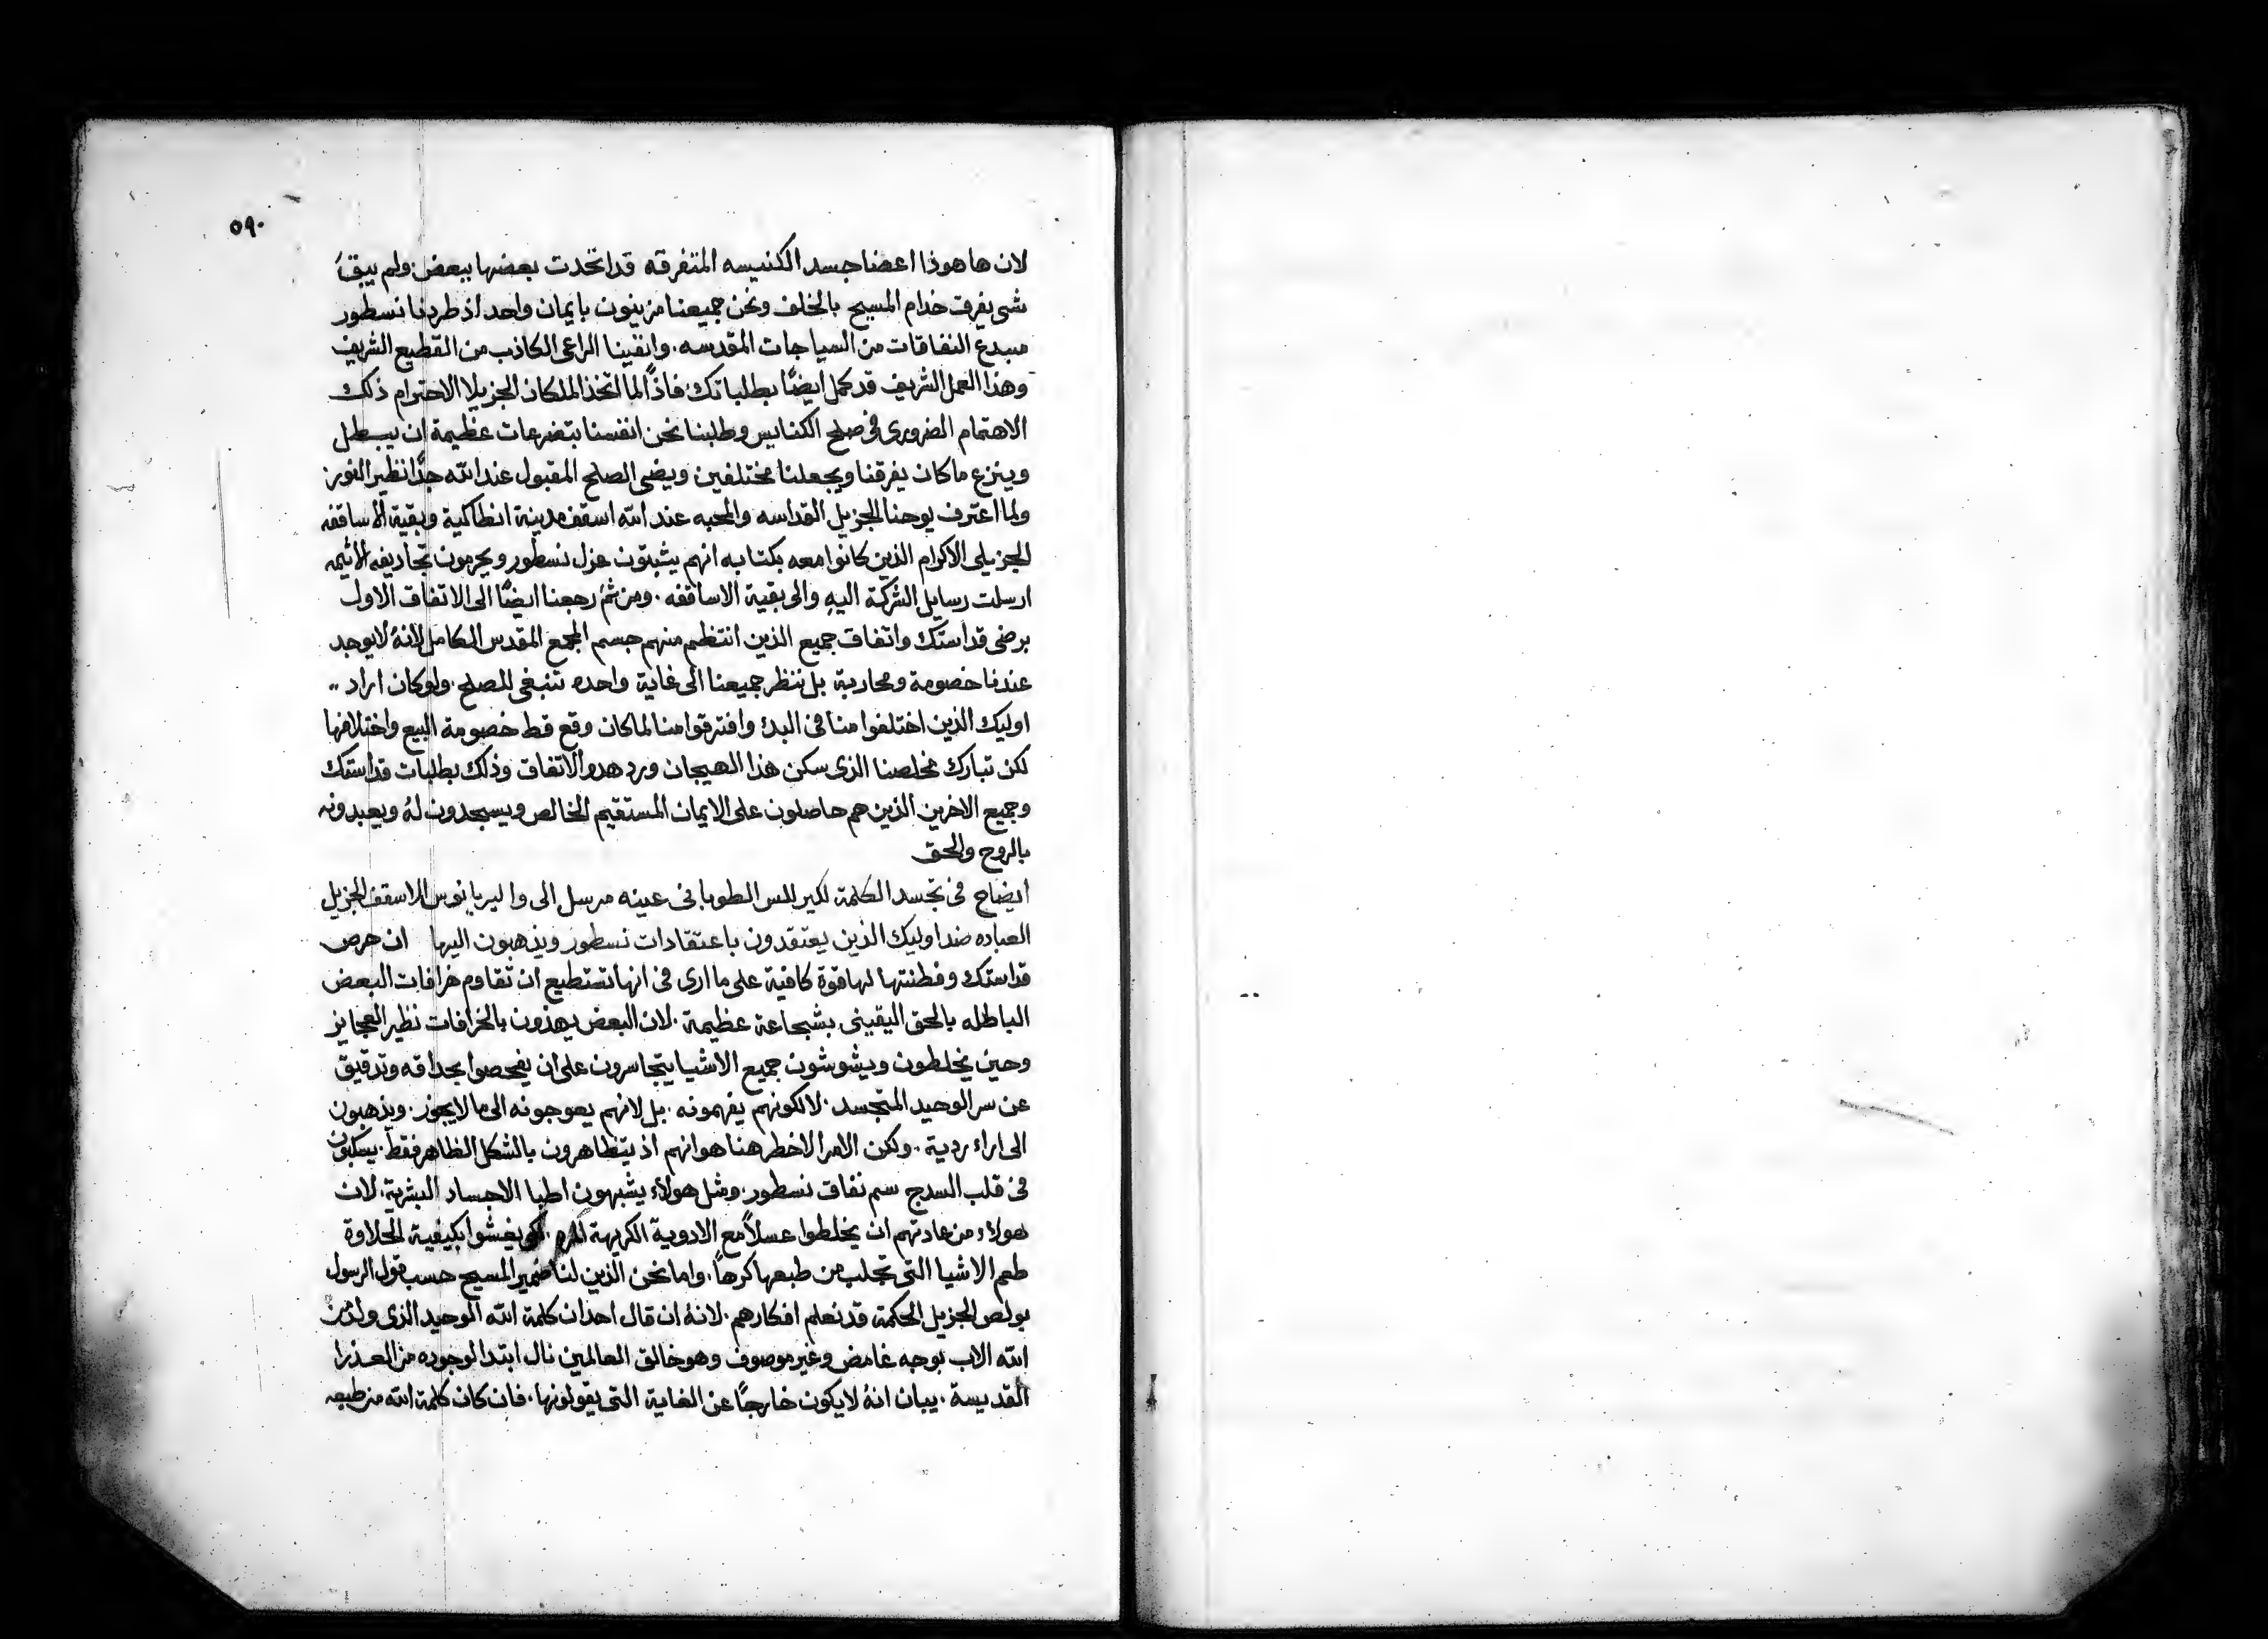 ٥٩٠
لان هاهوذا اعضا جسد الكنيسه المتفرقه قد اتحدت بعضها ببعض ولم يبقَ
شى يفرق خدام المسيح بالخلف ونحن جميعنا مزينون بايمان واحد اذ طردنا نسطور
مبدع النفاقات من السياجات المقدسه. وانفينا الراعى الكاذب من القطيع الشريف
وهذا العمل الشريف قد كمل ايضًا بطلباتك. فاذًا لما اتخذ الملكان الجزيلا الاحترام ذلك
الاهتمام الضرورى فى صلح الكنايس وطلبنا نحن انفسنا بتضرعات عظيمة ان يبطل
وينزع ما كان يفرقنا ويجعلنا مختلفين ويضى الصلح المقبول عند الله جدًا نظير النور
ولما اعترف يوحنا الجزيل القداسه والمحبه عند الله اسقف مدينة انطاكية وبقية الاساقفه
الجزيلى الاكرام الذين كانوا معه بكتابه انهم يثبتون عزل نسطور ويحرمون تجاديفه الاثيمه
ارسلت رسايل الشركة اليهِ والى بقية الاساقفه. ومن ثمَ رجعنا ايضًا الى الاتفاق الاول
برضى قداستك واتفاق جميع الذين انتظم منهم جسم المجمع المقدس الكامل لانهُ لا يوجد
عندنا خصومة ومحاربة بل ننظر جميعنا الى غاية واحده تنبغى للصلح. ولو كان اراد ..
اوليك الذين اختلفوا منا فى البدء وافترقوا منا لما كان وقع قط خصومة البيع واختلافها
لكن تبارك مخلصنا الذى سكن هذا الهيجان ورد هدو الاتفاق وذلك بطلبات قداستك
وجميع الاخرين الذين هم حاصلون على الايمان المستقيم الخالص ويسجدون لهُ ويعبدونه
بالروح والحق
ايضاح فى تجسد الكلمة لكيرللس الطوبانى عينه مرسل الى واليريانوس الاسقف الجزيل
العباده ضد اوليك الذين يعتقدون باعتقادات نسطور ويذهبون اليها ان حرص
قداستك وفطنتها لها قوة كافية على ما ارى فى انها تستطيع ان تقاوم خرافات البعض
الباطله بالحق اليقينى بشجاعة عظيمة. لان البعض يهذون بالخرافات نظير العجايز
وحين يخلطون ويشوشون جميع الاشيا يتجاسرون على ان يفحصوا بحداقه وتدقيق
عن سر الوحيد المتجسد. لا لكونهم يفهمونه. بل لانهم يعوجونه الى ما لا يجوز. ويذهبون
الى اراء ردية. ولكن الامر الاخطر هنا هو انهم اذ يتظاهرون بالشكل الظاهر فقط. يسكبون
فى قلب السدج سم نفاق نسطور. ومثل هولاء يشبهون اطبا الاجساد البشرية. لان
هولاء من عادتهم ان يخلطوا عسلاً مع الادوية الكريهة لكى يغشوا بكيفية الحلاوة
طعم الاشيا التى تجلب من طبعها كرهاً. واما نحن الذين لنا ضمير المسيح حسب قول الرسول
بولص الجزيل الحكمة قد نعلم افكارهم. لانهُ ان قال احد ان كلمة الله الوحيد الذى ولد من
الله الاب بوجه غامض وغير موصوف وهو خالق العالمين نال ابتدا لوجوده من العذرا
القديسة. يبان انهُ لا يكون خارجًا عن الغاية التى يقولونها. فان كان كلمة الله من طبعه